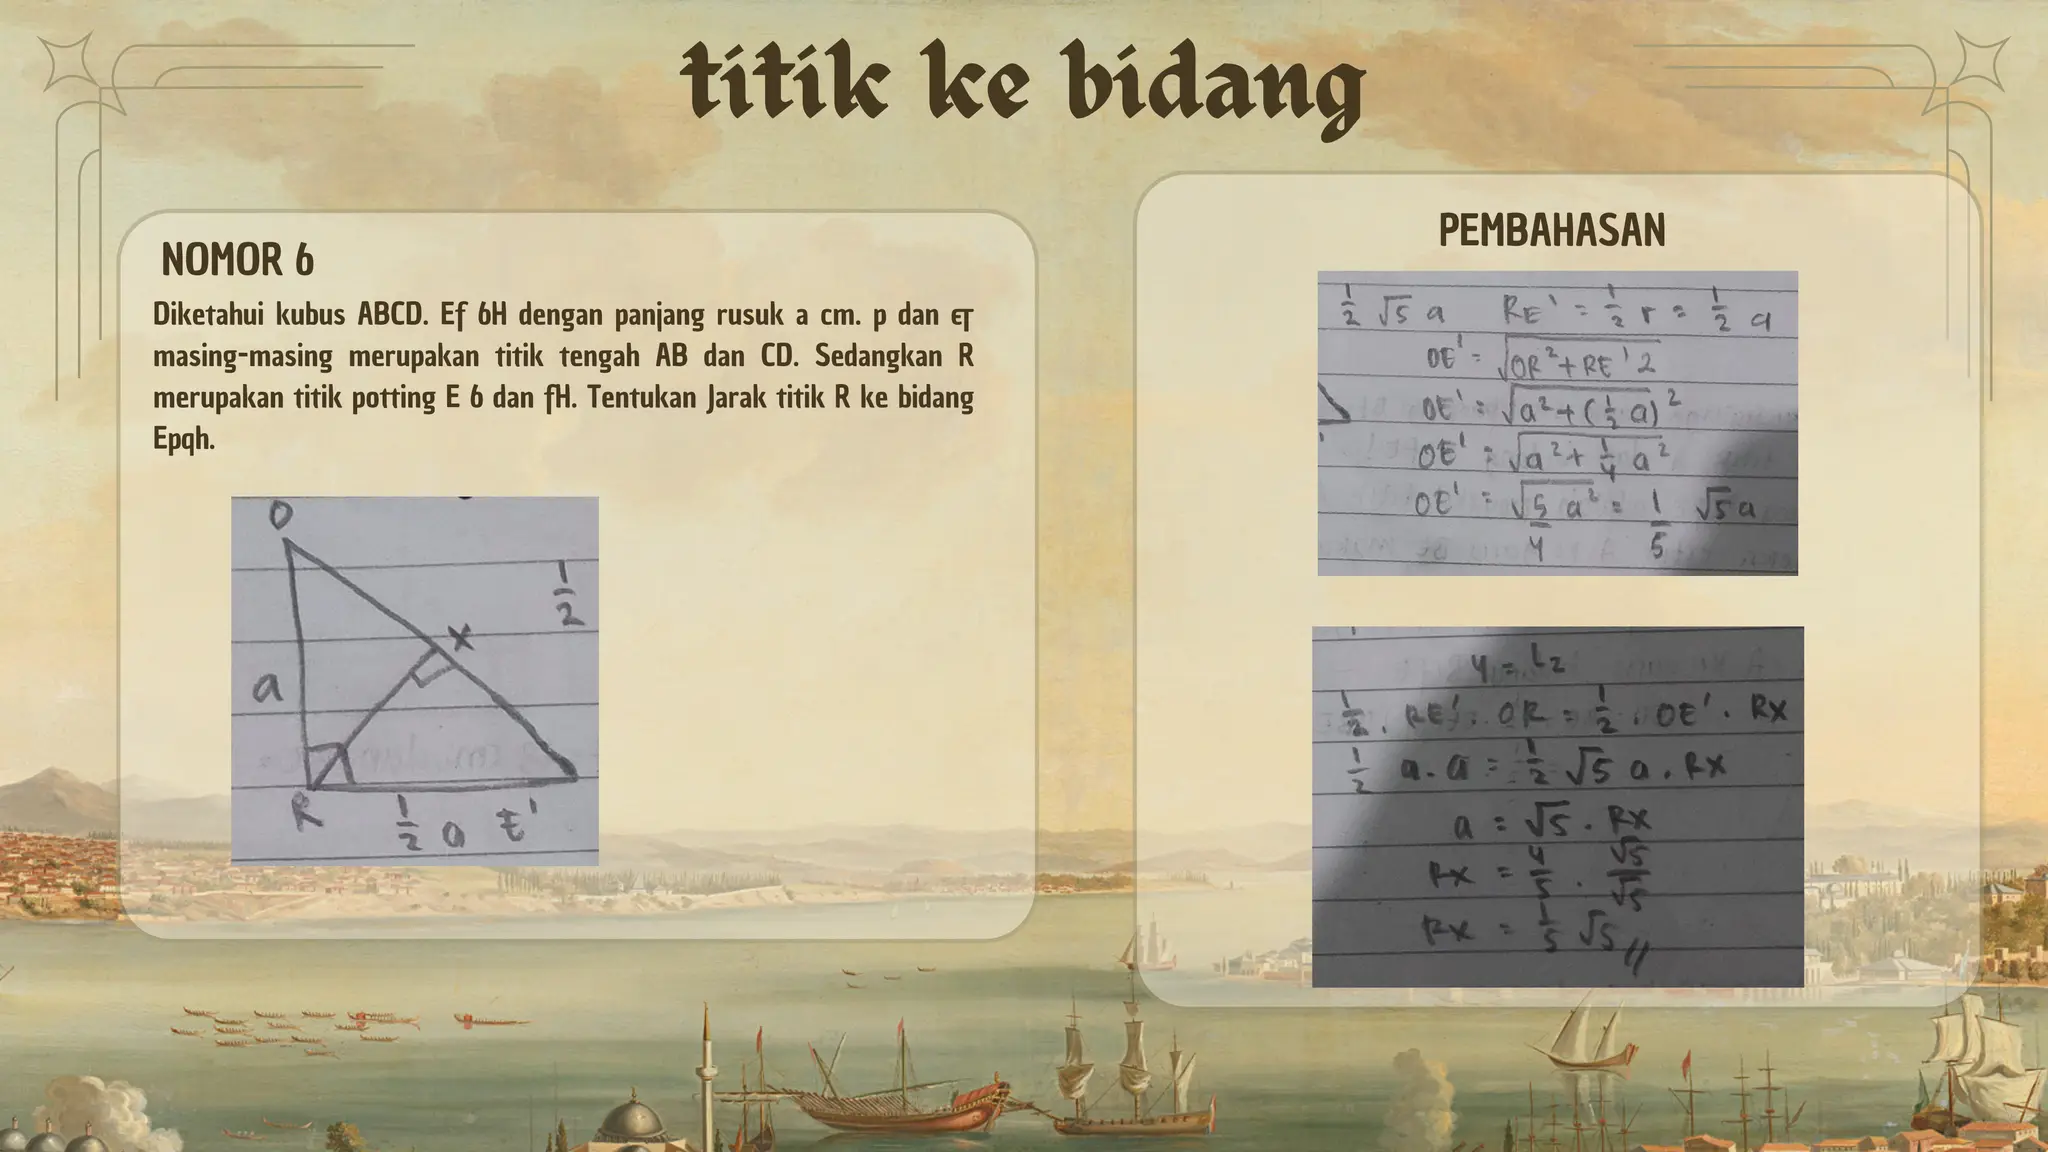 titik ke bidang
NOMOR 6
Diketahui kubus ABCD. Ef 6H dengan panjang rusuk a cm. p dan q
masing-masing merupakan titik tengah AB dan CD. Sedangkan R
merupakan titik potting E 6 dan fH. Tentukan Jarak titik R ke bidang
Epqh.
O
1/2
X
a
R 1/2 a E'
PEMBAHASAN
1/2 √5 a RE' = 1/2 r = 1/2 a
OE' = √OR²+RE'2
OE' = √a²+(1/2 a)²
OE' = √a²+1/4 a²
OE' = √5/4 a² = 1/5 √5 a
4 = L2
1/2 . RE' . OR = 1/2 . OE' . RX
1/2 a . a = 1/2 √5 a . RX
a = √5 . RX
RX = 4/5 . √5/√5
RX = 1/5 √5 //